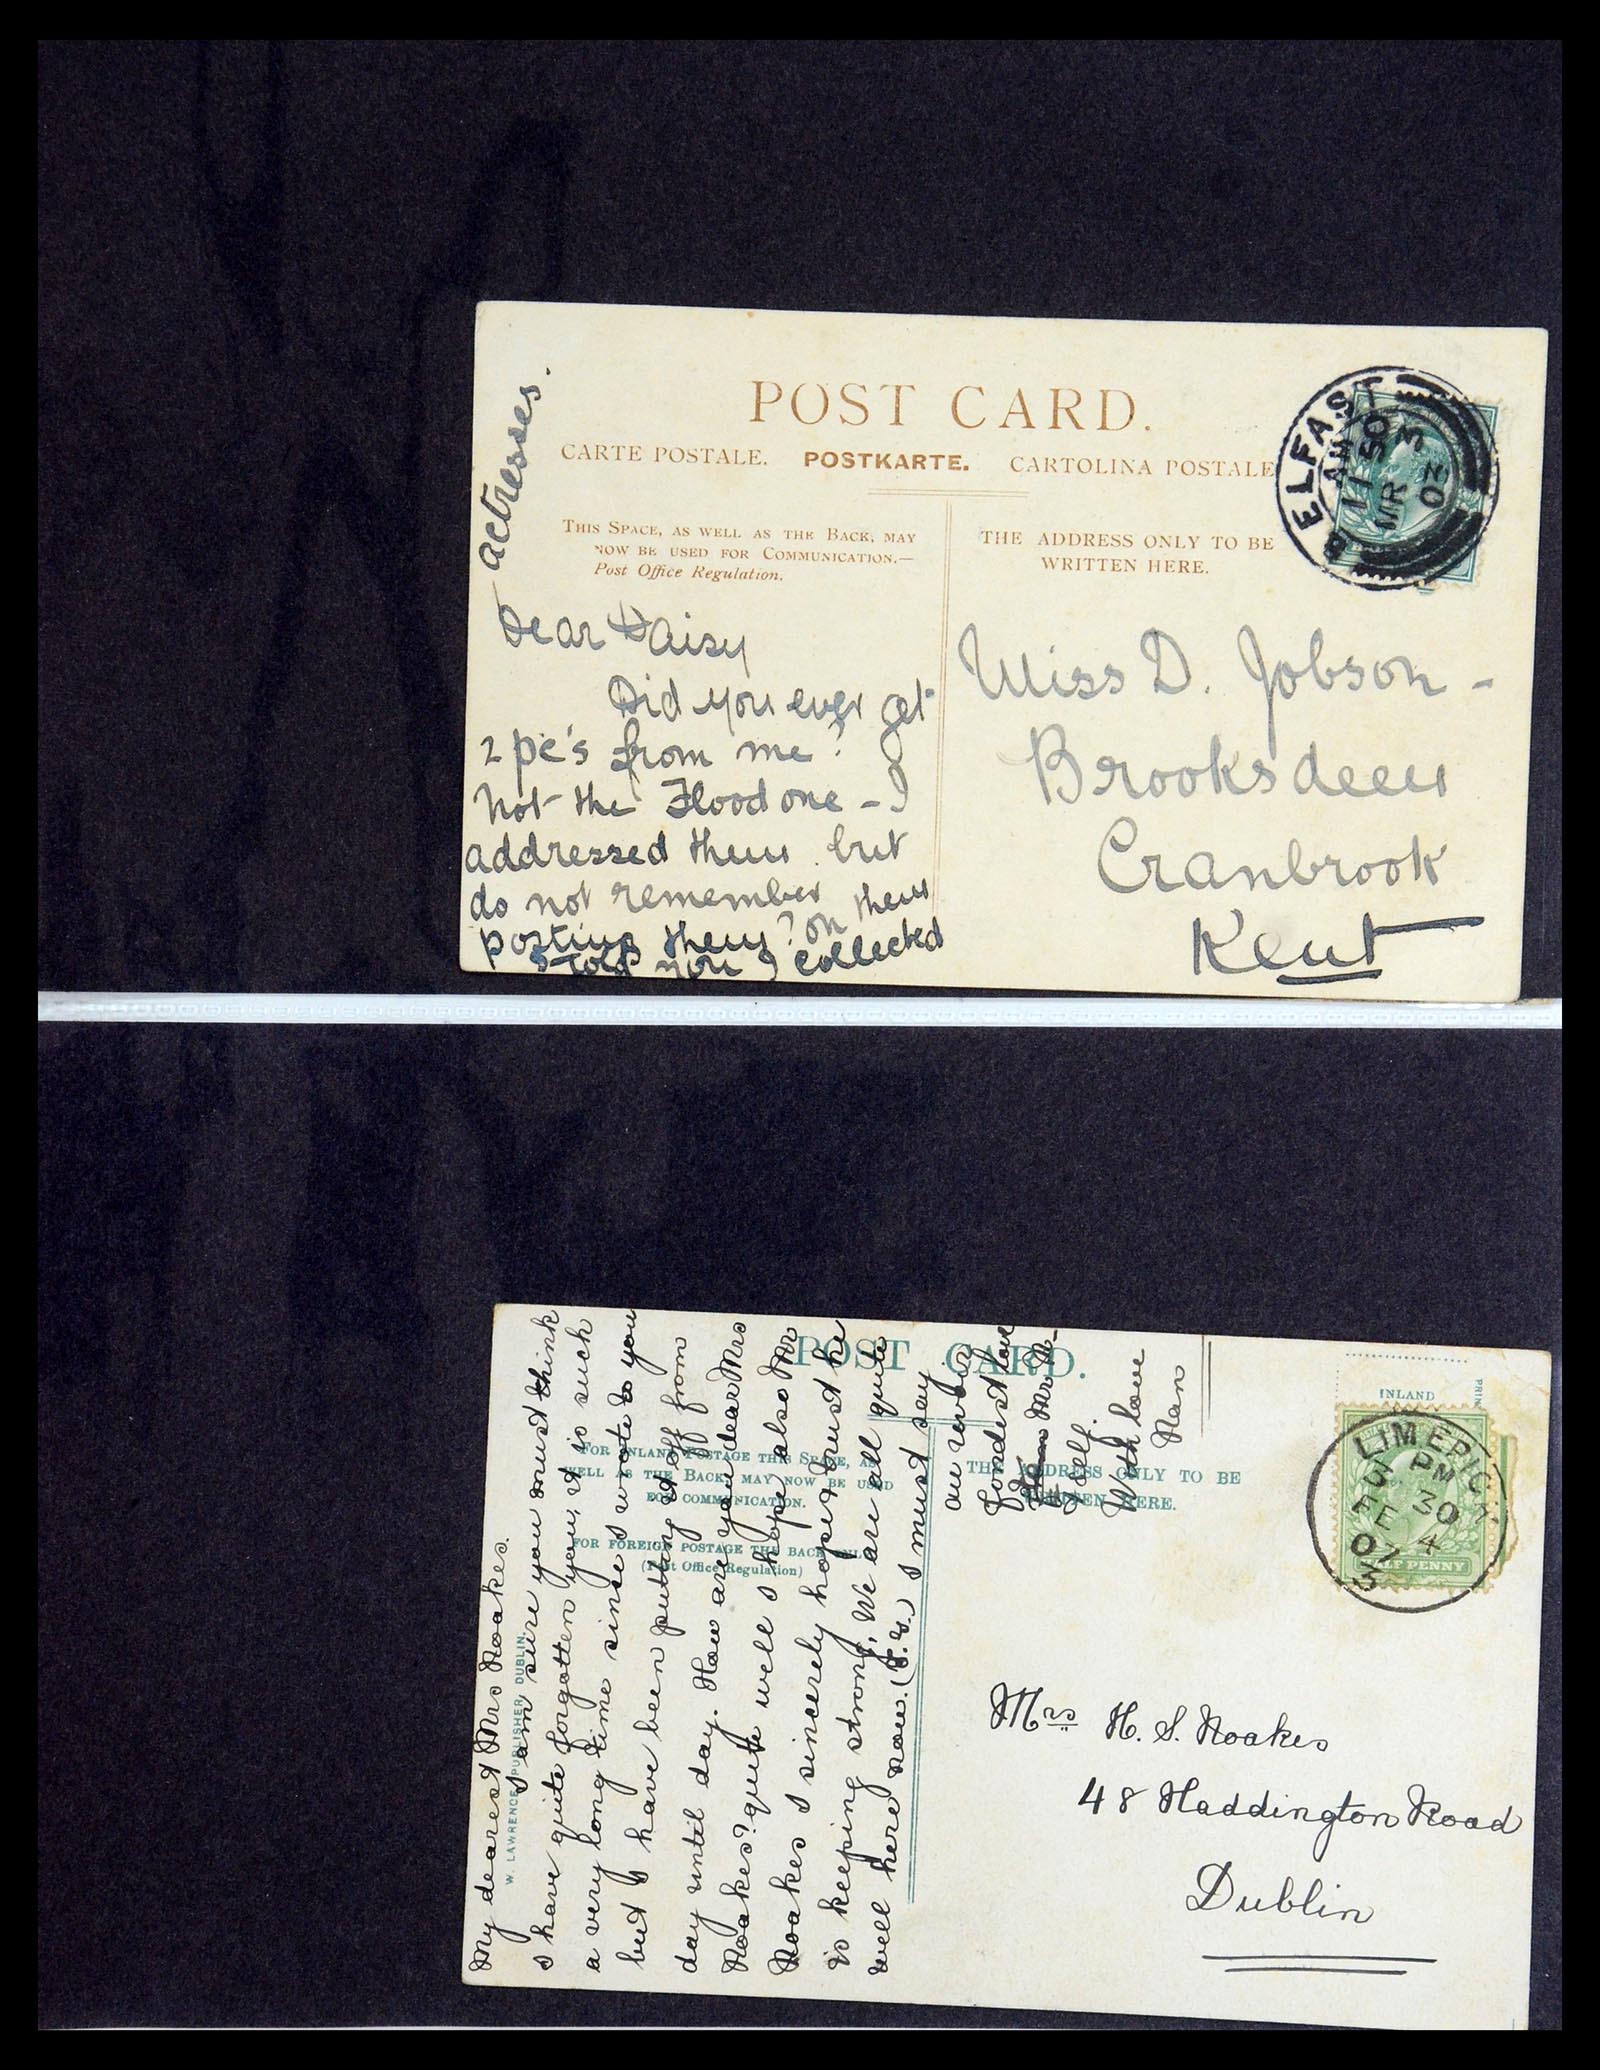 POST CARD.
CARTE POSTALE. POSTKARTE. CARTOLINA POSTALE
THIS SPACE, AS WELL AS THE BACK, MAY
NOW BE USED FOR COMMUNICATION.—
Post Office Regulation.
THE ADDRESS ONLY TO BE
WRITTEN HERE.
BELFAST
11 50 AM
MR 3
03
Dear Daisy
Did you ever get
2 pc's from me?
Not the Flood one - I
addressed them but
do not remember
posting them?
I told you I collected
on them
actresses.
Miss D. Jobson -
Brooksdeen
Cranbrook
Kent
POST CARD.
FOR INLAND POSTAGE THIS SPACE, AS
WELL AS THE BACK, MAY NOW BE USED
FOR COMMUNICATION.
FOR FOREIGN POSTAGE THE BACK ONLY
(Post Office Regulation)
THE ADDRESS ONLY TO BE
WRITTEN HERE.
INLAND
PRIN
HALF PENNY
LIMERICK
PM
30
FE 4
07
W. LAWRENCE, PUBLISHER, DUBLIN.
My dearest Mrs Noakes.
I am sure you must think
I have quite forgotten you, it is such
a very long time since I wrote to you
but I have been putting it off from
day until day. How are you dear Mrs
Noakes? quite well I hope, also Mr
Noakes I sincerely hope & trust he
is keeping strong, We are all quite
well here now. I must say
au revoir
fondest love
Mr N-
& self.
With love
Nan
Mrs H. S. Noakes
48 Haddington Road
Dublin